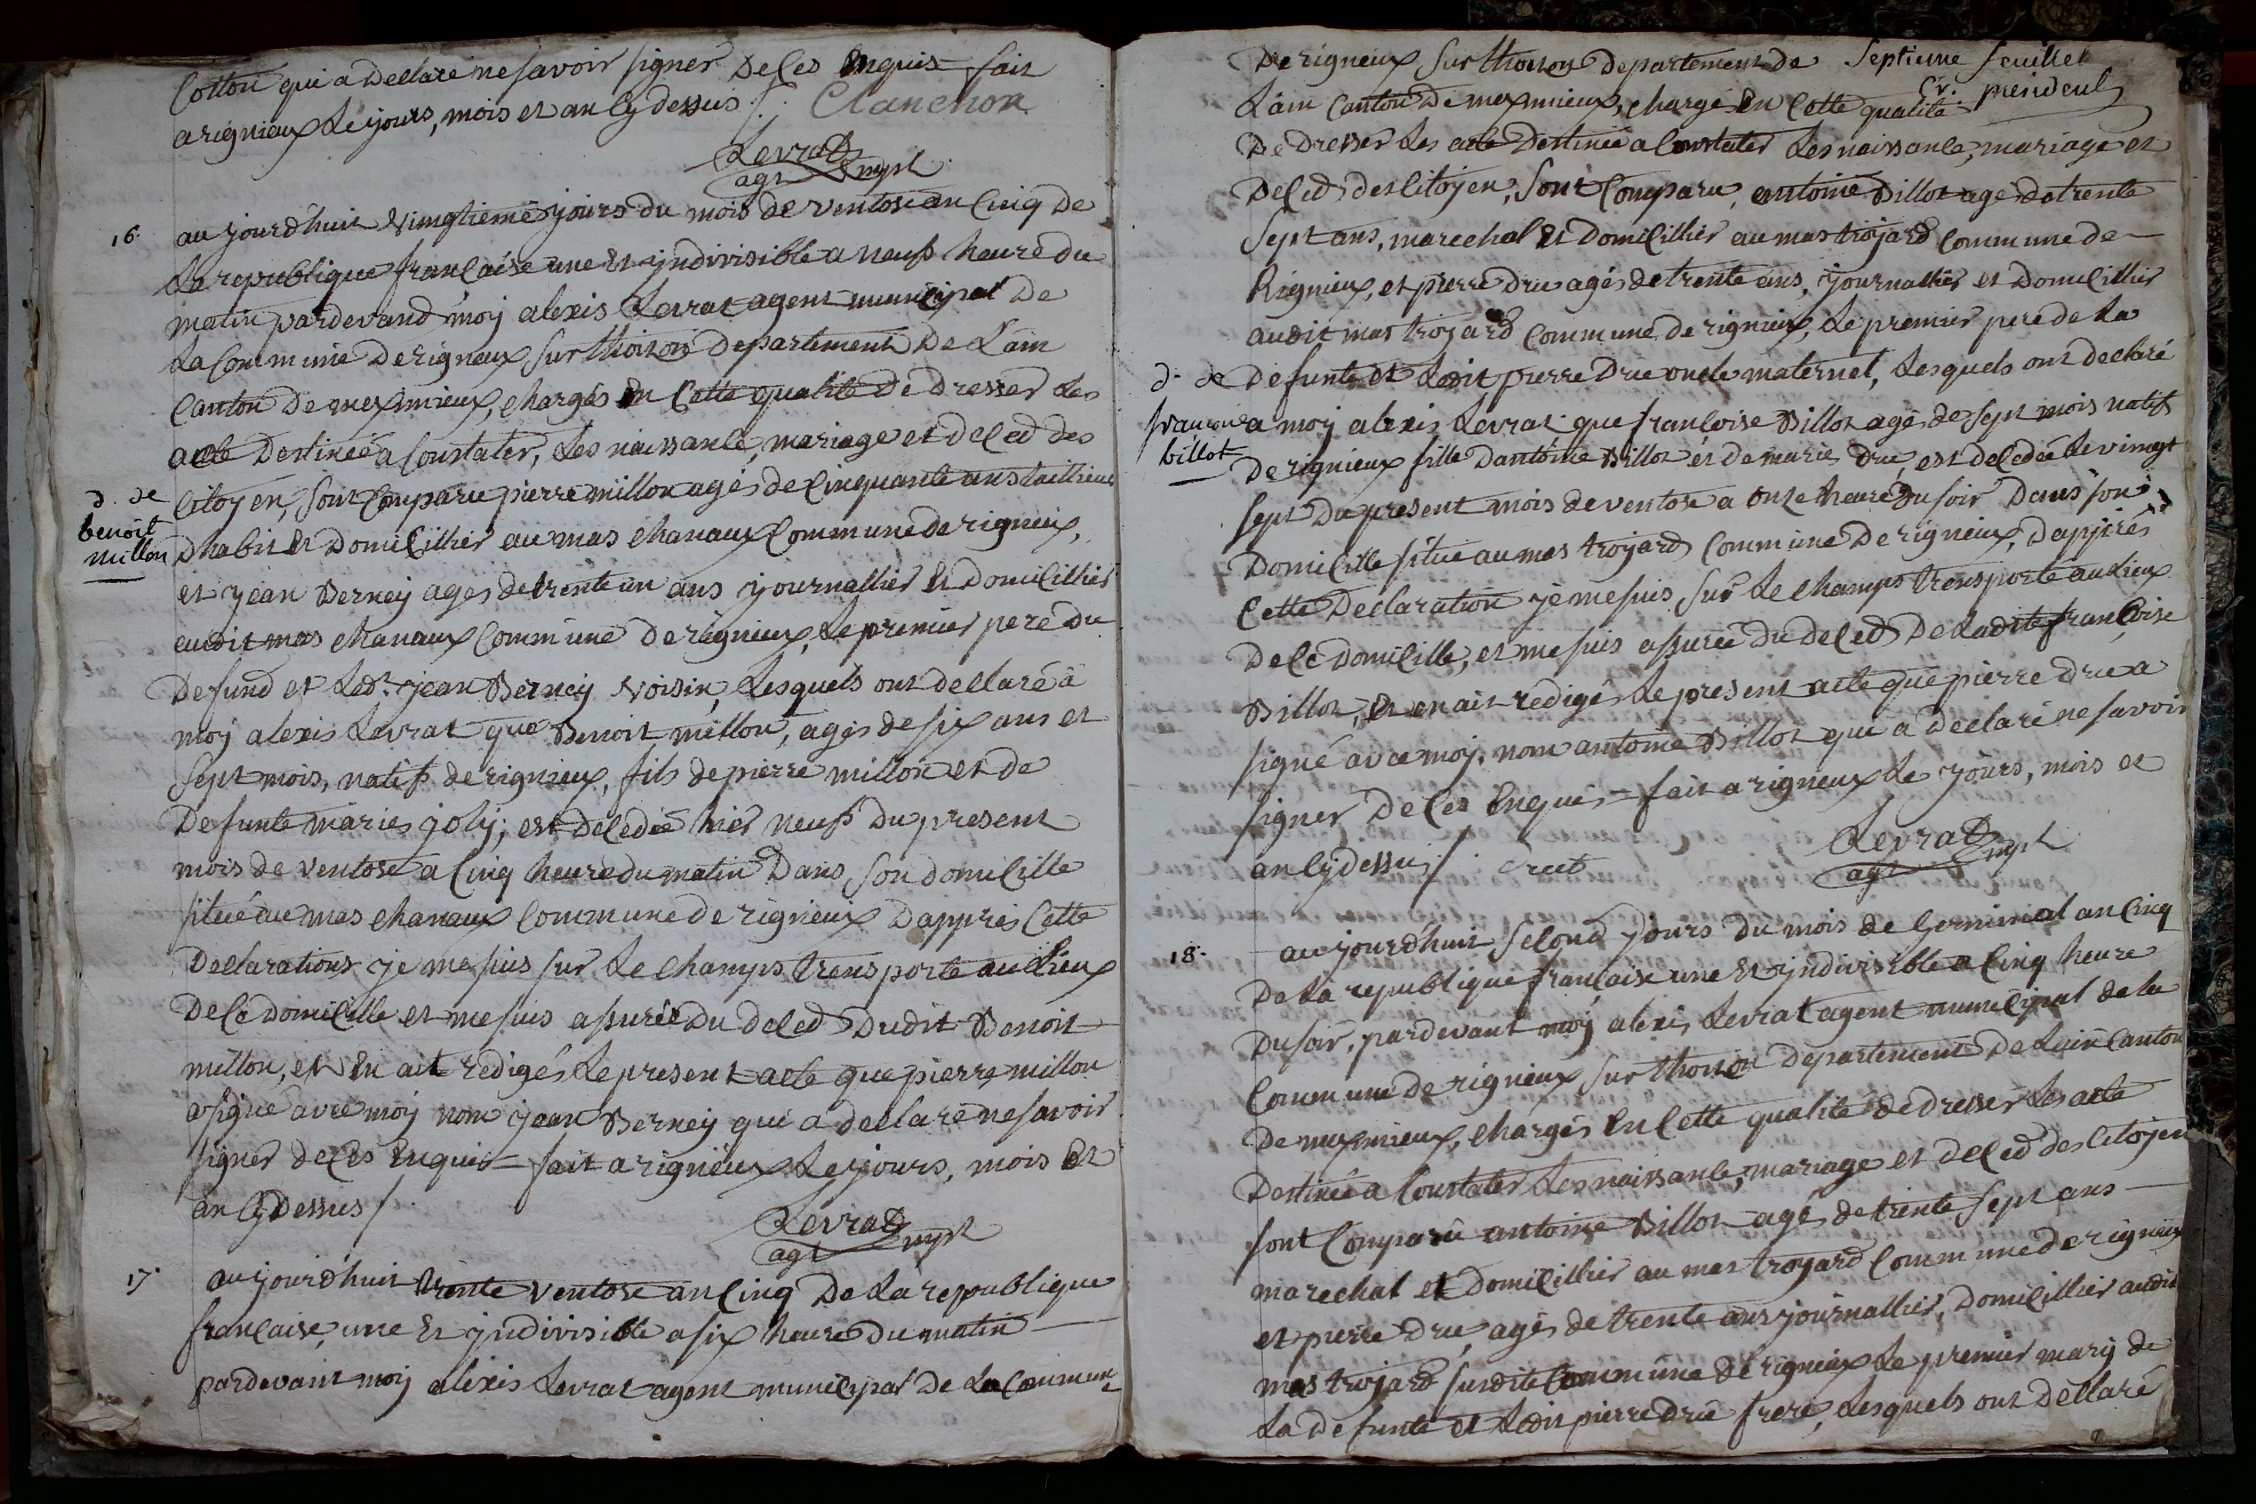 Cotton qui a declaré ne savoir signer de ces enquis fait
a rignieux le yours, mois et an cy dessus /. Clanchon
Levrat
agt mpl
16. aujourd'huit vingtieme yours du mois de ventose an cinq de
la republique francaise une et yndivisible a neufs heure du
matin pardevand moy alexis Levrat agent municipal de
la Commune de rigneux sur thoison departement de L'ain
Canton de meximieux, chargés en cette qualité de dresser les
acte destinéé a constater, les naissance, mariage et deced des
d. de
benoit
millon
Citoyen, sont comparu pierre millon agés de cinquante ans tailleur
dhabit et domicillier au mas chanaux Commune de rignieux,
et yean Berney agés de trente un ans yournallier et domicillier
audit mas chanaux commune de rignieux, le premier pere du
defund et Ledt. yean Berney voisin, Lesquels ont declaré a
moy alexis Levrat que Benoit millon, agés de six ans et
sept mois, natifs de rignieux, fils de pierre millon et de
defunte maries joly; est decedée hier neufs du present
mois de ventose a Cinq heure du matin dans son domicille
situé au mas chanaux commune de rignieux dapprés Cette
declarations ye me suis sur le champs transporte au Lieux
de cè domicille et me suis assurée du deced dudit Benoit
millon, et en ait redigés le present acte que pierre millon
a signé avec moy nom yean Berney qui a declaré ne savoir
signer de ces enquis fait a rignieux le yours, mois et
an cy dessus /.
Levrat
agt mpl
17. aujourd'huit trente ventose an cinq de la republique
francaise, une et yndivisible a six heure du matin
pardevant moy alexis Levrat agent municipal de la commune
Septieme feuillet
Cr. president
de rigneux sur thoison departement de
L'ain canton de meximieux, chargé en cette qualité
de dresser les acte destinéé a constater les naissance, mariage et
deced des Citoyen, sont comparu, antoine Billot agé de trente
sept ans, marechal et domicillier au mas troyard commune de
Rignieux, et pierre drue agés de trente ans, yournallier et domicillier
audit mas troyard commune de rignieux, le premier pere de la
d. de
francoise
billot
defunte et Ledit pierre drue oncle maternel, Lesquels ont declaré
a moy alexis Levrat que francoise Billot agé de sept mois natifs
de rignieux fille dantoine Billot et de maries drue, est decedée le vingt
sept du present mois de ventose a onze heure du soir dans son
domicille situe au mas troyard commune de rignieux, dapprés
Cette declaration ye me suis sur le champs transporte au Lieux
de cè domicille, et me suis assurée du deced de ladite francoise
Billot, et en ait redigés le present acte que pierre drue a
signé avec moy, nom antoine Billot qui a declaré ne savoir
signer de ces enquis fait a rignieux le yours, mois et
an cy dessus /. drut
Levrat
agt mpl
18. aujourd'huit second yours du mois de Germinal an cinq
de la republique francaise une et yndivisible a cinq heure
du soir, pardevant moy alexis Levrat agent municipal de la
commune de rignieux sur thoison departement de L'ain canton
de meximieux, chargés en cette qualité de dresser les acte
destinéé a constater les naissance, mariage et deced des Citoyen
sont comparu antoine Billot agé de trente sept ans
marechal et domicillier au mas troyard commune de rignieux
et pierre drue, agés de trente ans yournallier, domicillier audit
mas troyard susdite commune de rignieux le premier mary de
la defunte et Ledit pierre drue frere, Lesquels ont declaré